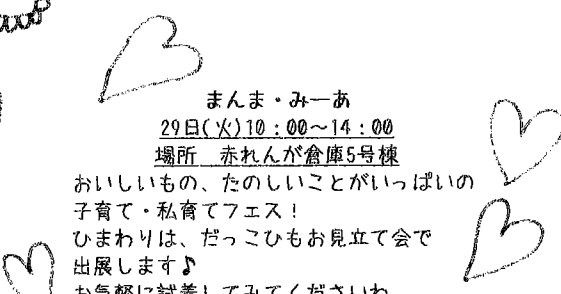 まんま・みーあ
29日(火)10：00～14：00
場所　赤れんが倉庫5号棟
おいしいもの、たのしいことがいっぱいの
子育て・私育てフェス！
ひまわりは、だっこひもお見立て会で
出展します♪
お気軽に試着してみてくださいね